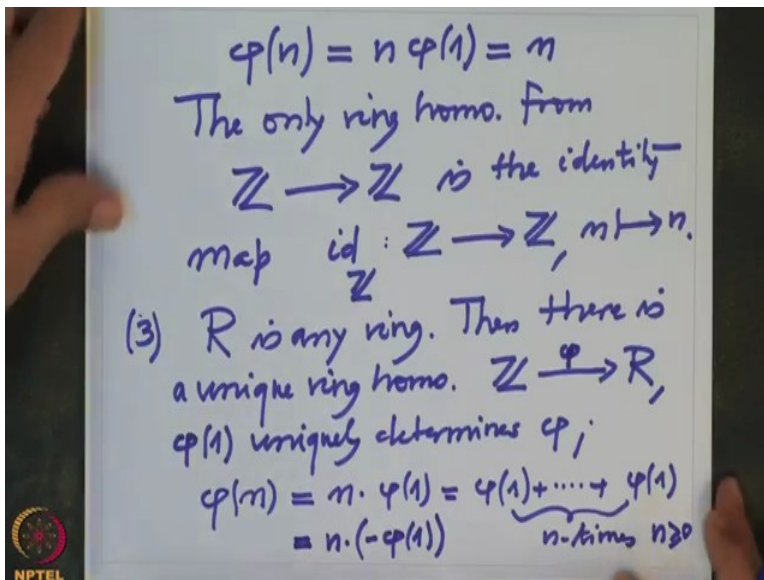 φ(n) = n φ(1) = n
The only ring homo. from
ℤ ⟶ ℤ is the identity
map id_ℤ : ℤ ⟶ ℤ, n ↦ n.
(3) R is any ring. Then there is
a unique ring homo. ℤ —φ→ R,
φ(1) uniquely determines φ;
φ(n) = n · φ(1) = φ(1) + ····· + φ(1)
= n · (-φ(1)) n-times n≥0
NPTEL